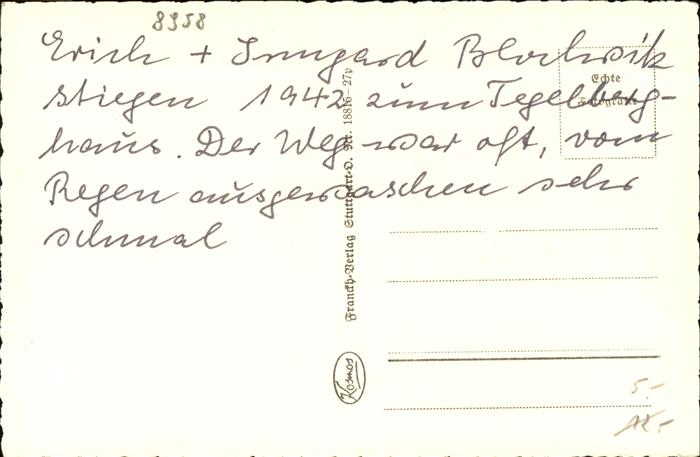 8958
Erich + Irmgard
stiegen 1942 zum Tegelberg-
haus. Der Weg war oft, vom
Regen ausgewaschen sehr
schmal
Echte
Fotografie
Franckh-Verlag Stuttgart-O. Nr. 18816-27v
Kosmos
5.-